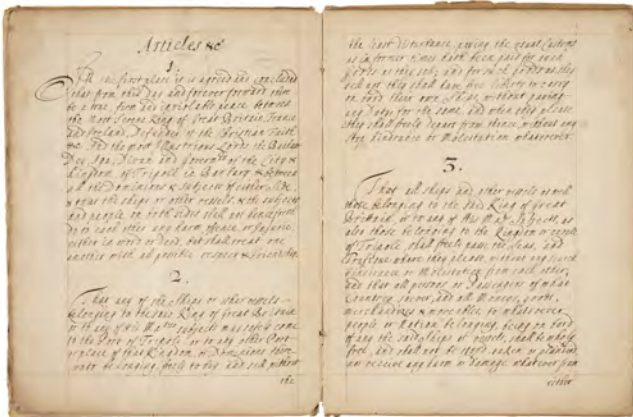 Articles &c
1.
In the first place it is agreed and concluded
that from this Day and forever forward there
be a true, firm and inviolable peace between
the most Serene King of Great Britain, France
and Ireland, Defender of the Christian Faith
&c. And the most Illustrious Lords the Bashaw
Dey, Aga, Divan and Governors of the City &
Kingdom of Tripoli in Barbary & between
all the Dominions & Subjects of either Side,
& that the ships or other vessels, & the subjects
and people on both sides shall not henceforth
do to each other any harm, offence, or Injurie,
either in word or Deed, but shall treat one
another with all possible respect & Friendship.
2.
That any of the Ships or other vessels
belonging to the said King of Great Britain
or to any of his Maties subjects may safely come
to the Port of Tripoli or to any other Port
or place of that Kingdom, or Dominions there
unto belonging, freely to buy, and sell without
the
the least disturbance, paying the usual Customs
as in former times hath been paid for such
Goods as they sell; and for such goods as they
sell not they shall have free liberty to carry
on bord their own Ships without paying
any Duty for the same, and when they please
they shall freely depart from thence, without any
stop hindrance or Molestation whatsoever.
3.
That all ships and other vessels as well
those belonging to the said King of Great
Brittain, or to any of his Maties Subjects, as
also those belonging to the Kingdom or people
of Tripoli, shall freely pass the Seas, and
where they please, without any search
hinderance or Molestation from each other,
and that all persons or Passengers of what
Country soever, and all Moneys, goods,
merchandizes & moveables, to whatsoever
people or Nation belonging, being on bord
of any the said Ships or vessels, shall be wholly
free, and shall not be stopt, taken or plundered,
nor receive any harm or damage whatsoever from
either